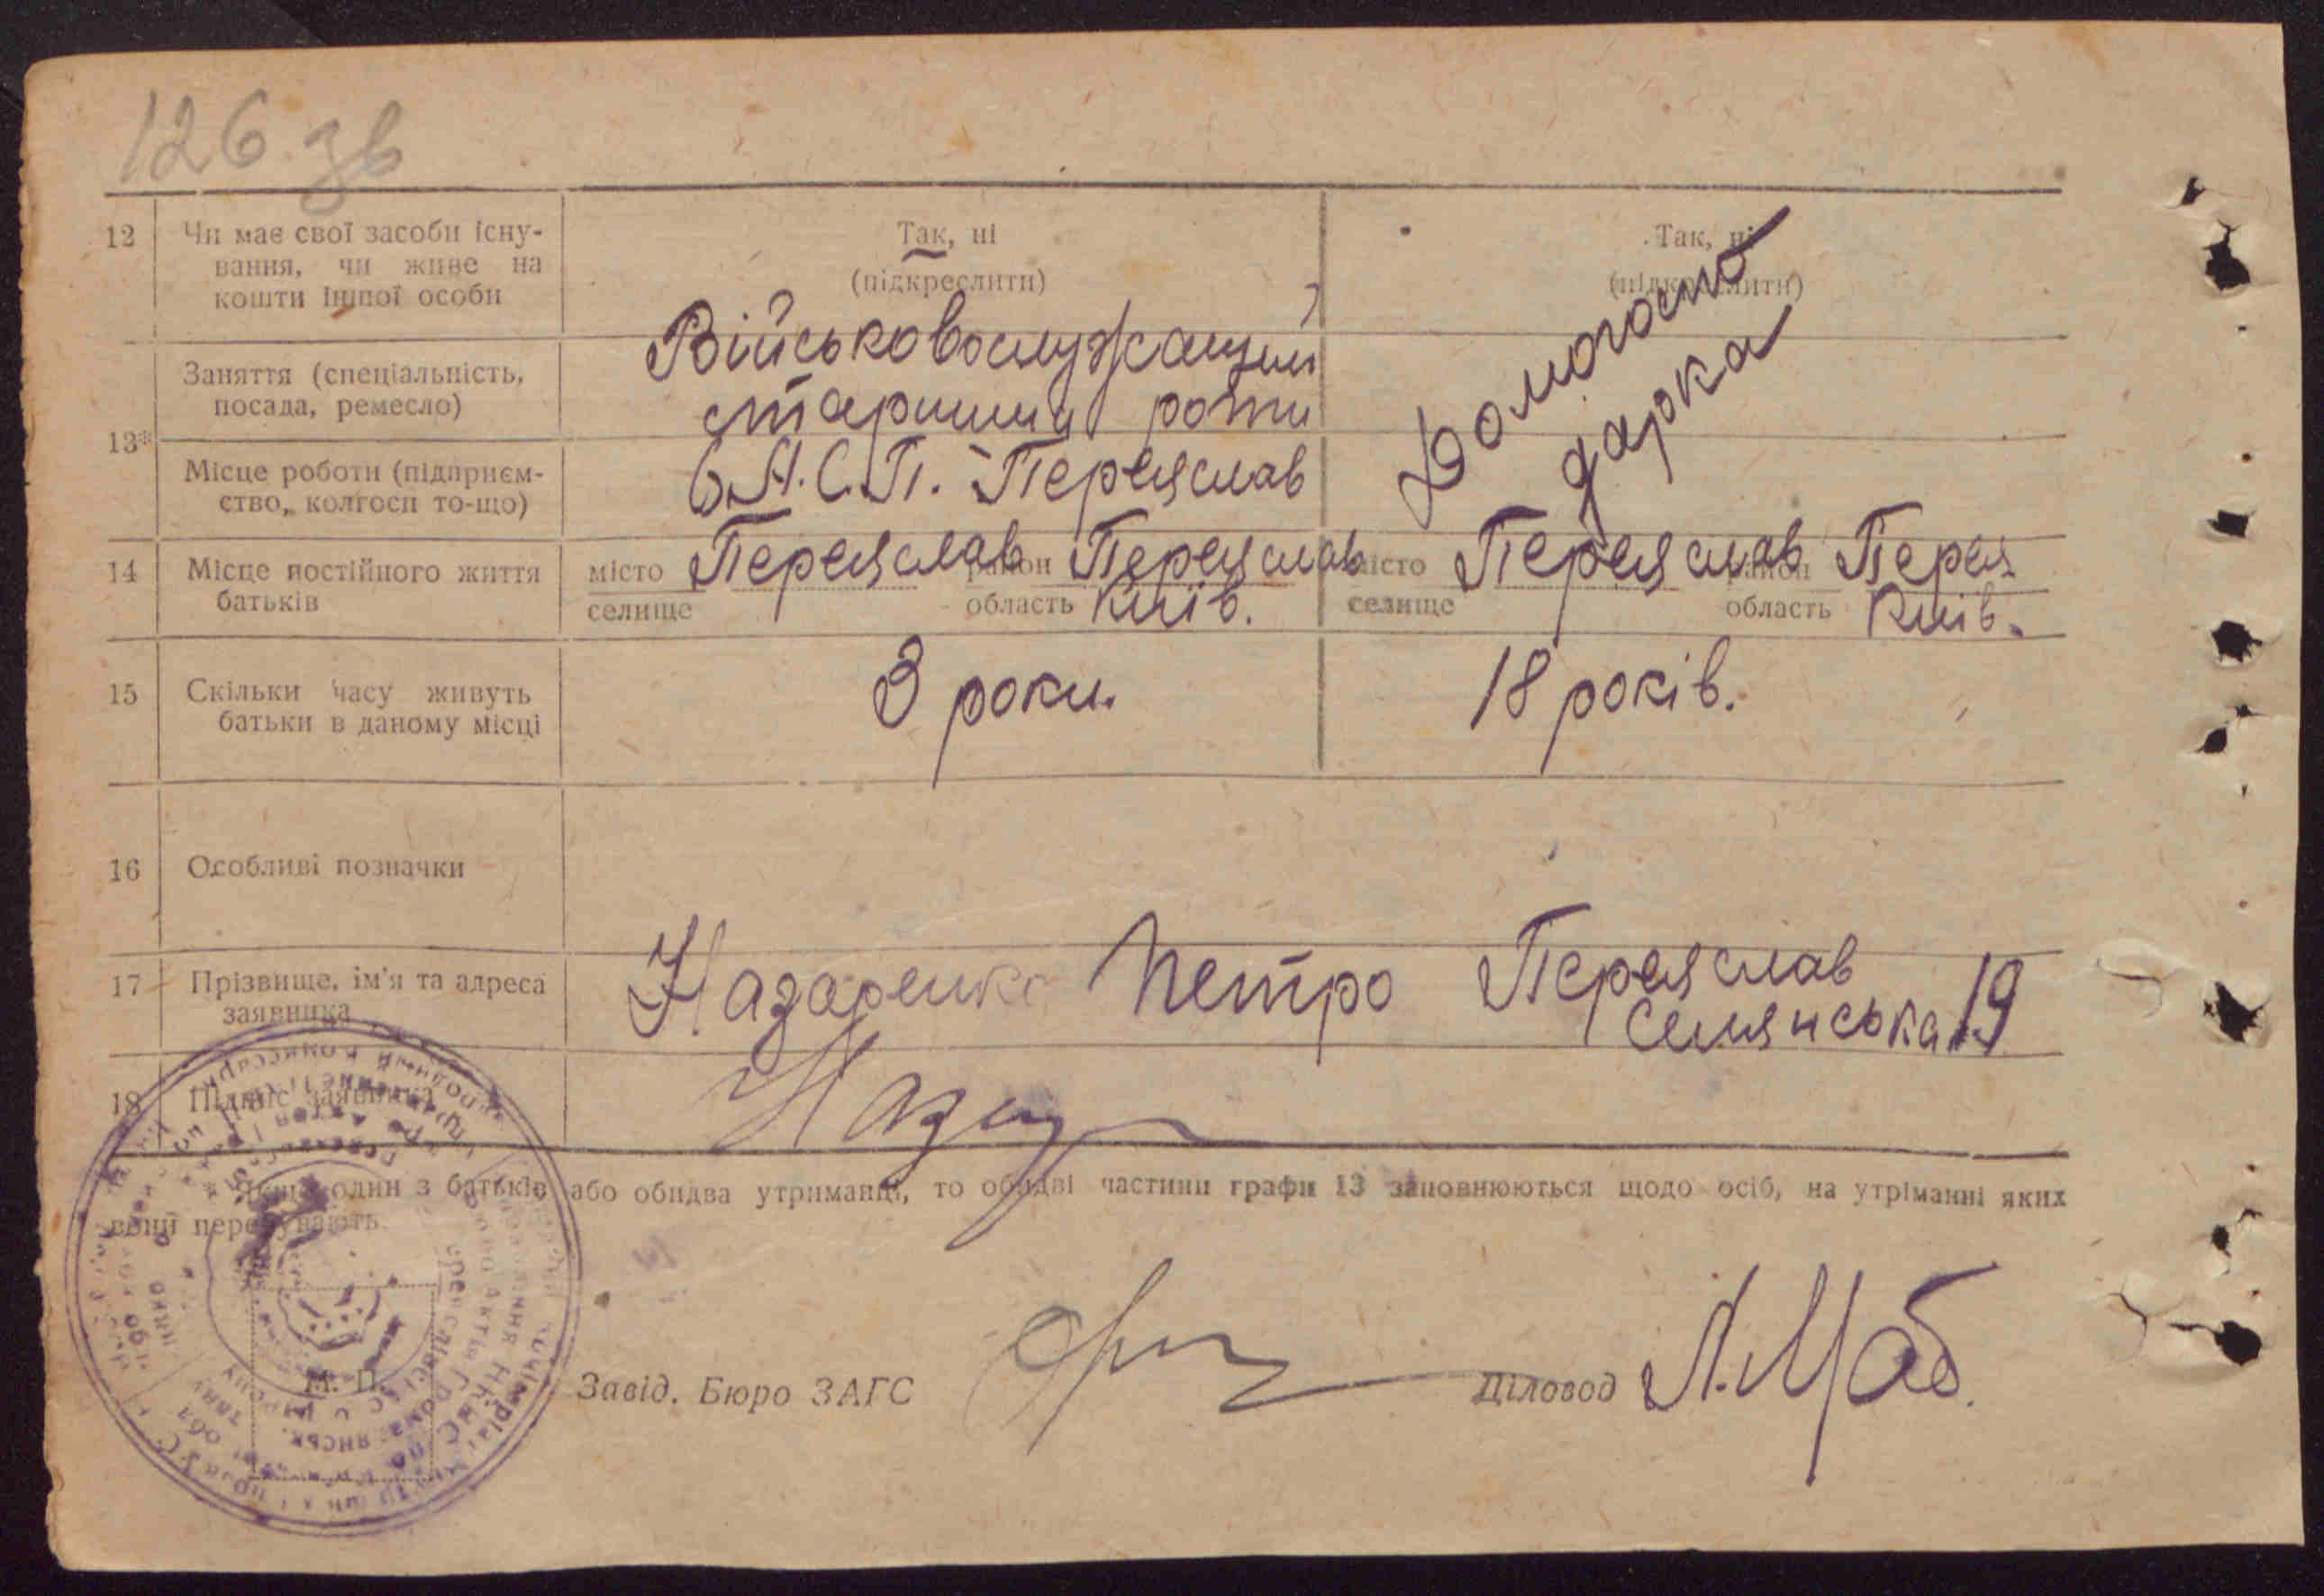 126 зв
12 Чи має свої засоби існу-
вання, чи живе на
кошти іншої особи
Так, ні
(підкреслити)
Так, ні
(підкреслити)
13* Заняття (спеціальність,
посада, ремесло)
Військовослужащий
старшина роти
Домогоспо
дарка
Місце роботи (підприєм-
ство, колгосп то-що)
Переяслав
14 Місце постійного життя
батьків
місто Переяслав район Переяслав
селище область Київ.
місто Переяслав район Перея
селище область Київ.
15 Скільки часу живуть
батьки в даному місці
3 роки.
18 років.
16 Особливі позначки
17 Прізвище, ім'я та адреса
заявника
Назаренко Петро Переяслав
Селянська 19
18 Підпис заявника
* Якщо один з батьків або обидва утриманці, то обидві частини графи 13 заповнюються щодо осіб, на утріманні яких
вони перебувають
М. П.
Завід. Бюро ЗАГС
Діловод